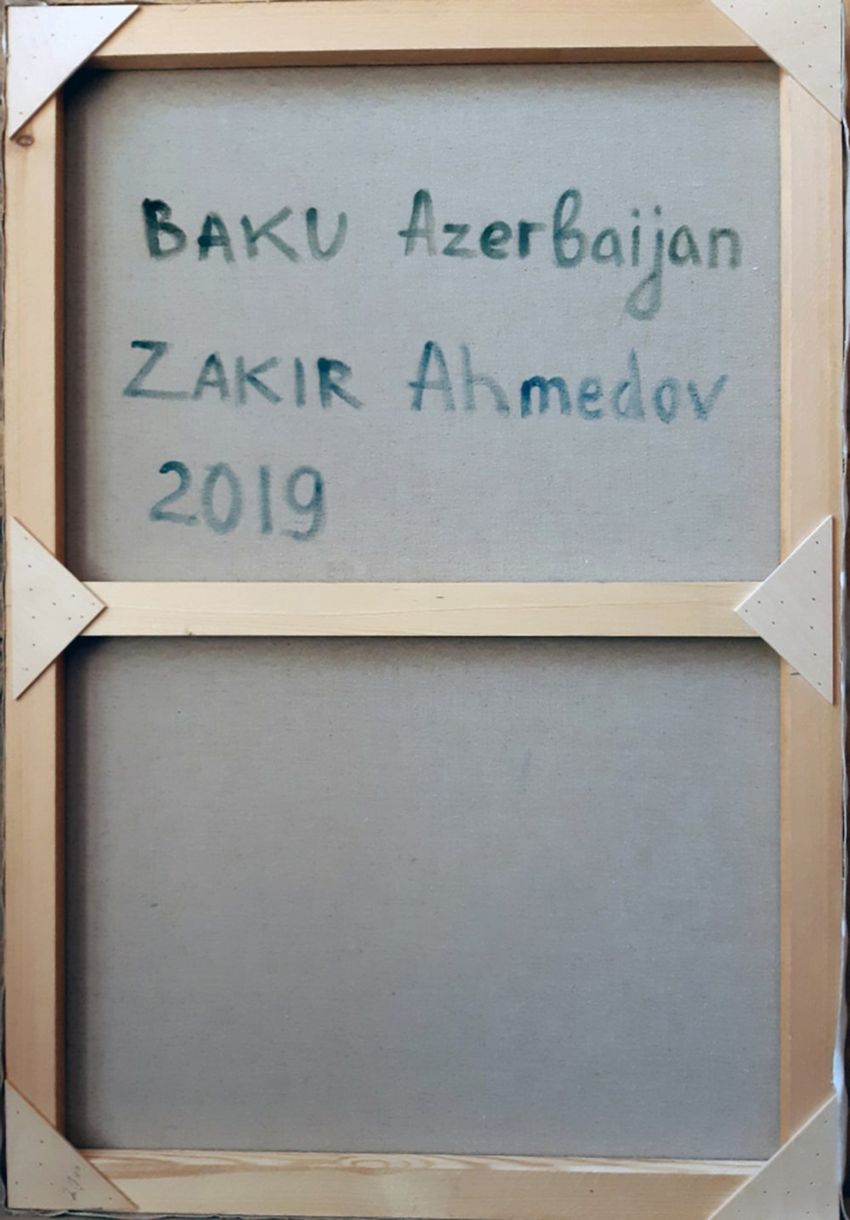 BAKU Azerbaijan
ZAKIR Ahmedov
2019